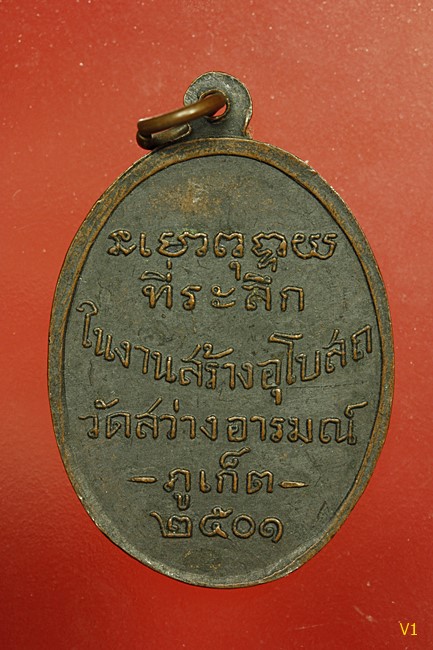 ที่ระลึก
ในงานสร้างอุโบสถ
วัดสว่างอารมณ์
-ภูเก็ต-
๒๕๐๑
V1